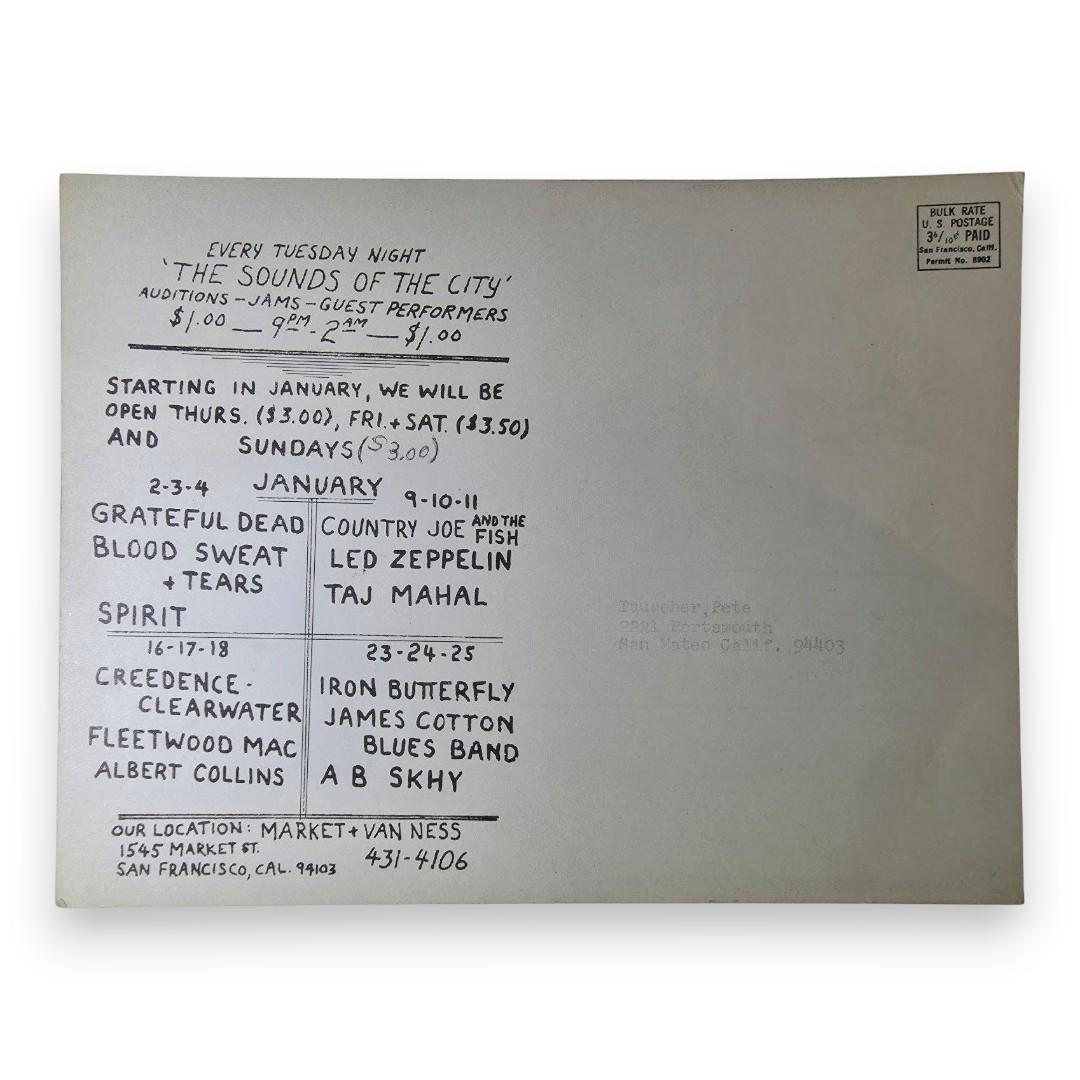 EVERY TUESDAY NIGHT
'THE SOUNDS OF THE CITY'
AUDITIONS - JAMS - GUEST PERFORMERS
$1.00 — 9PM - 2AM — $1.00
STARTING IN JANUARY, WE WILL BE
OPEN THURS. ($3.00), FRI. + SAT. ($3.50)
AND SUNDAYS ($3.00)
JANUARY
2-3-4
GRATEFUL DEAD
BLOOD SWEAT
+ TEARS
SPIRIT
9-10-11
COUNTRY JOE AND THE FISH
LED ZEPPELIN
TAJ MAHAL
16-17-18
CREEDENCE -
CLEARWATER
FLEETWOOD MAC
ALBERT COLLINS
23-24-25
IRON BUTTERFLY
JAMES COTTON
BLUES BAND
A B SKHY
OUR LOCATION: MARKET + VAN NESS
1545 MARKET ST.
SAN FRANCISCO, CAL. 94103
431-4106
BULK RATE
U. S. POSTAGE
3 6/10¢ PAID
San Francisco, Calif.
Permit No. 8902
Tauscher, Pete
2221 Portsmouth
San Mateo Calif. 94403